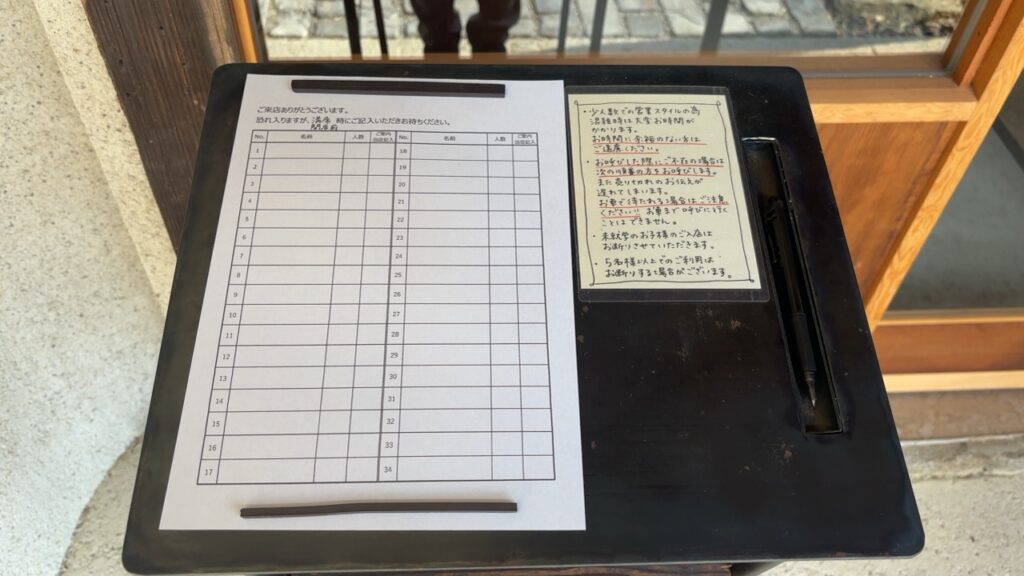 ご来店ありがとうございます。
恐れ入りますが、満席 時にご記入いただきお待ちください。
開店前
No. 名前 人数 ご案内 当店記入 No. 名前 人数 ご案内 当店記入
1 18
2 19
3 20
4 21
5 22
6 23
7 24
8 25
9 26
10 27
11 28
12 29
13 30
14 31
15 32
16 33
17 34
・少人数での営業スタイルの為
混雑時は大変お時間が
かかります。
お時間に余裕のない方は
ご遠慮ください。
・お呼びした際にご不在の場合は
次の順番の方をお呼びします。
また売り切れのお伝えが
遅れてしまいます。
お車で待たれる場合はご注意
ください!! お車まで呼びに行く
ことはできません。
・未就学のお子様のご入店は
お断りさせていただきます。
・5名様以上でのご利用は
お断りする場合がございます。